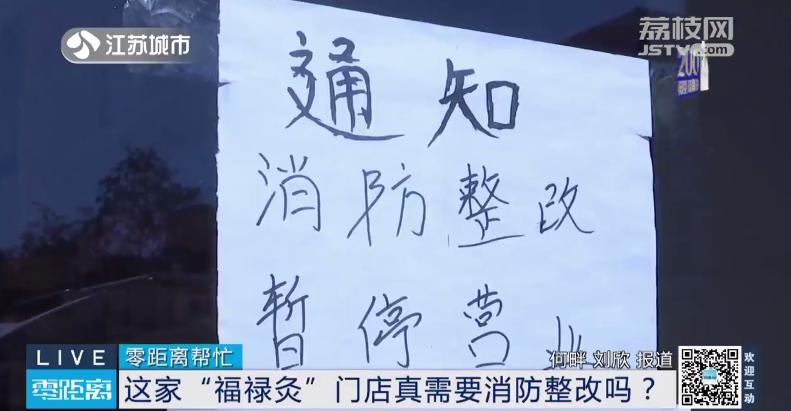 江苏城市
荔枝网
JSTV.COM
200
通知
消防整改
暂停营业
LIVE
零距离帮忙
何畔 刘欣 报道
零距离
这家“福禄灸”门店真需要消防整改吗？
欢迎互动